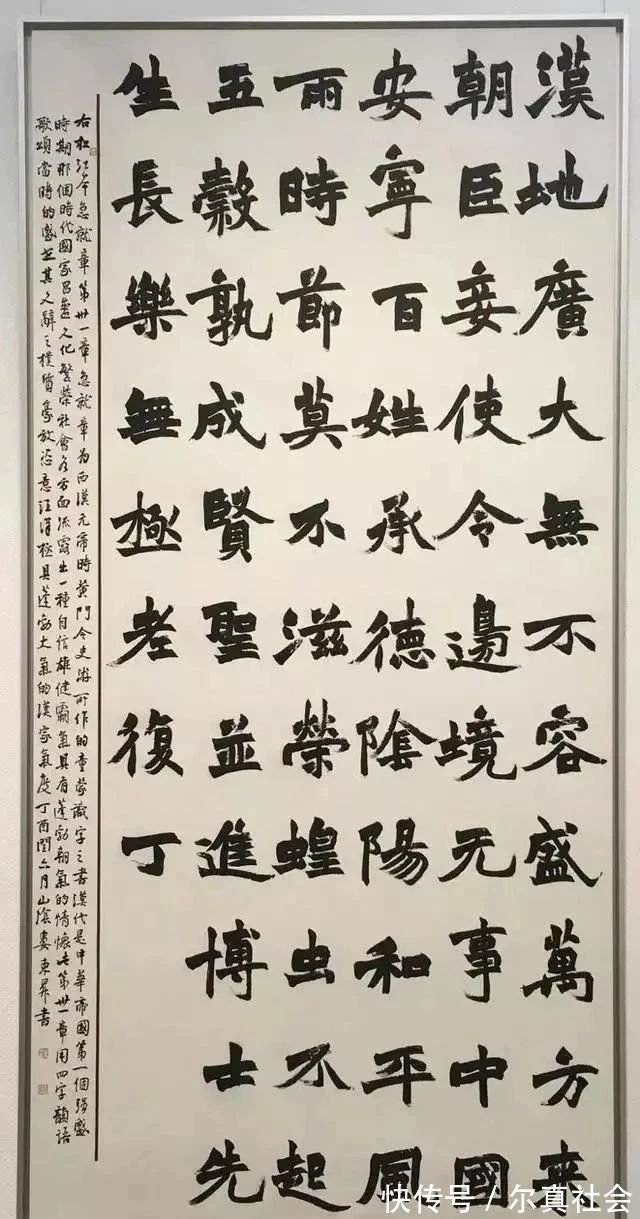 漢地廣大無不容盛萬方来
朝臣妾使令邊境无事中國
安寧百姓承德陰陽和平風
雨時節莫不滋榮蝗虫不起
五穀孰成賢聖並進博士先
生長樂無極老復丁
右松江本急就章第卅一章急就章为西漢元帝時黄門令史游所作的童蒙識字之書漢代是中華帝國第一個強盛
時期那個時代國家昌盛文化繁榮社會各方面流露出一種自信雄健霸氣具有蓬勃朝氣的情懷此第卅一章用四字韻語
歌頌當時的盛世其文辭之樸質豪放恣意汪洋極具蓬勃大氣的漢家氣度丁酉閏六月山陰婁東昇書
快传号/尔真社会